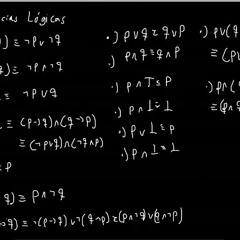 cias Lógicas
) ≡ ¬p∨¬q
) ≡ ¬p∧¬q
≡ ¬p∨q
≡ (p→q)∧(q→p)
≡ (¬p∨q)∧(¬q∧p)
≡ p
q) ≡ p∧¬q
→q) ≡ ¬(p→q)∨¬(q→p)≡(p∧¬q)∨(q∧¬p)
•) p∨q≡q∨p
p∧q≡q∧p
•) p∧⊤≡p
•) p∧⊥≡⊥
•) p∨⊥≡p
•) p∧⊥≡⊥
•) p∨(q
≡(p∨
•) p∧(q
≡(p∧q